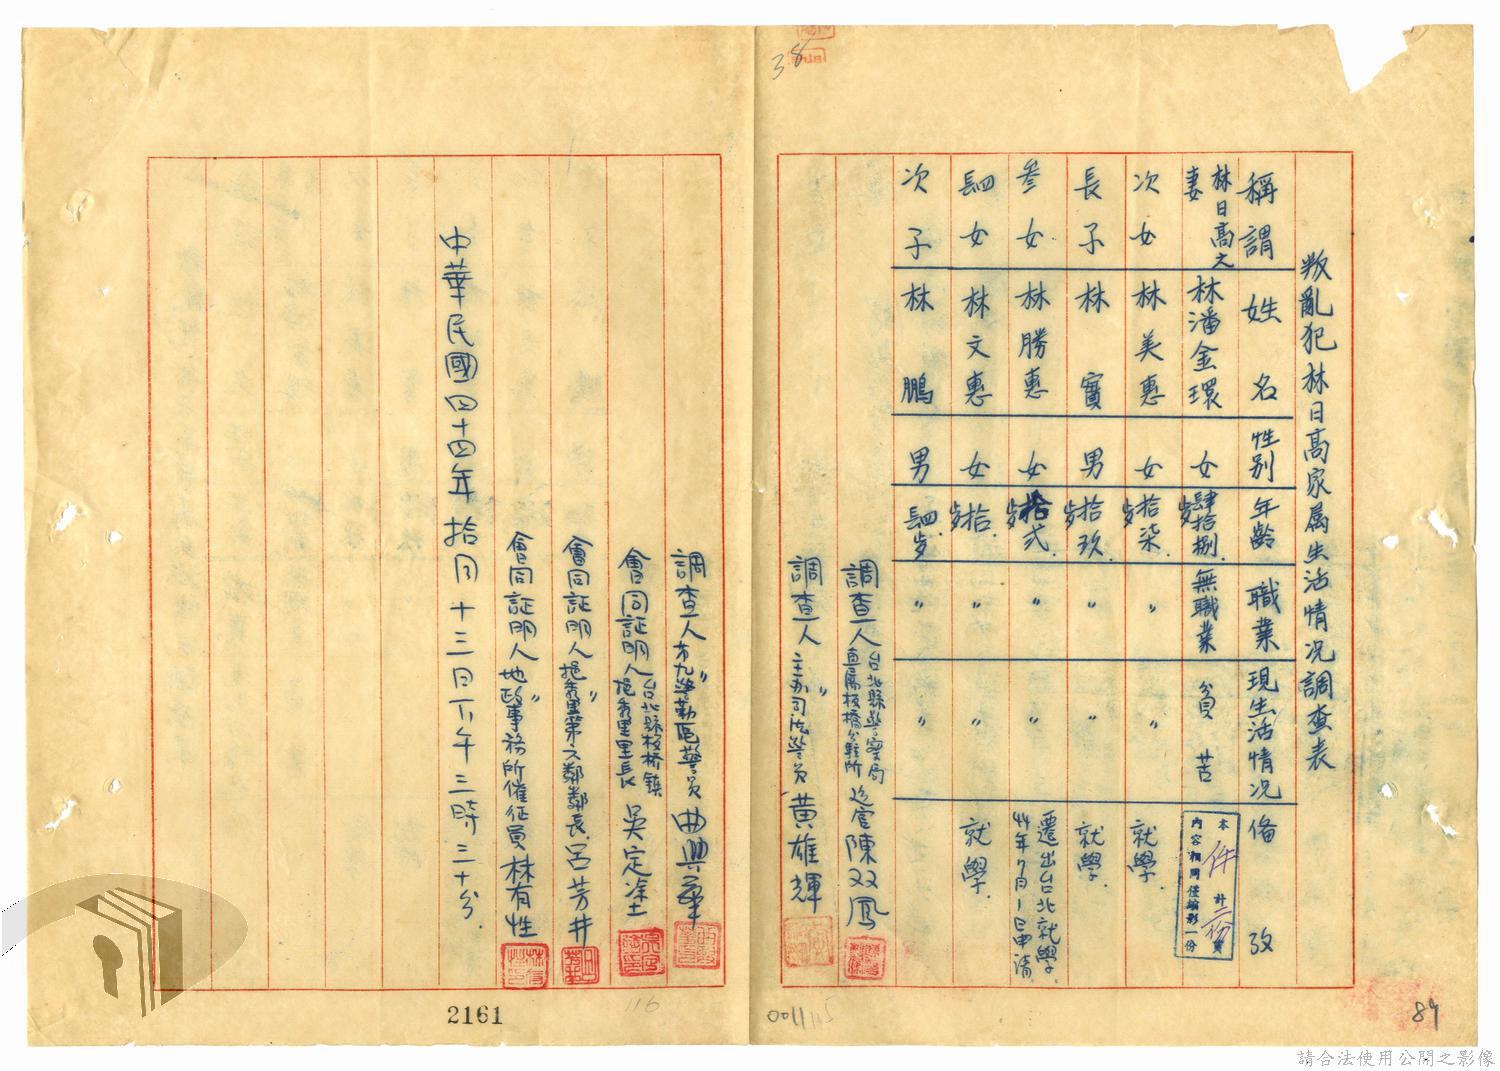 叛亂犯林日高家属生活情况調查表
稱謂 姓名 性别 年齡 職業 現生活情况 俻攷
林日高之妻 林潘金環 女 肆拾捌歩 無職業 貧苦
次女 林美惠 女 拾柒歩 〃 〃 就學
長子 林寶 男 拾玖歩 〃 〃 就學
参女 林勝惠 女 拾弍歩 〃 〃 遷出台北就學
44年7月1日申請
四女 林文惠 女 拾歩 〃 〃 就學
次子 林鵬 男 四歩 〃 〃
本件計二份實
內容相同僅縮影一份
調查人 台北縣警察局直屬板橋分駐所 巡官 陳双鳳
調查人 〃 主办司法警員 黄雄輝
調查人 〃 警勤區警員 曲興華
會同証明人 台北縣板桥鎮挹秀里里長 吳定塗
會同証明人 〃 挹秀里第六鄰鄰長 呂芳井
會同証明人 〃 地政事務所催征員 林有性
中華民國四十四年拾月十三日下午三時三十分
38
2161
116
0011115
89
請合法使用公開之影像